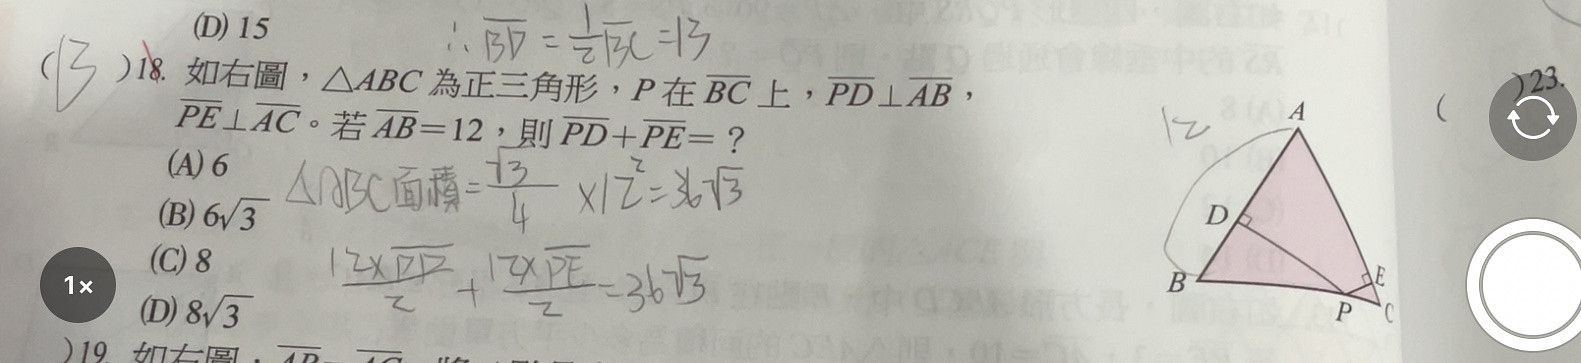 (D) 15
∴ BD = 1/2 BC = 13
(B) 18. 如右圖，△ABC 為正三角形，P 在 BC 上，PD⊥AB，
PE⊥AC。若 AB=12，則 PD+PE=？
(A) 6
△ABC面積 = √3/4 ×12² = 36√3
(B) 6√3
(C) 8
12×PD/2 + 12×PE/2 = 36√3
(D) 8√3
)19. 如右圖，
12
A
D
B
E
P
C
(
)23.
1×